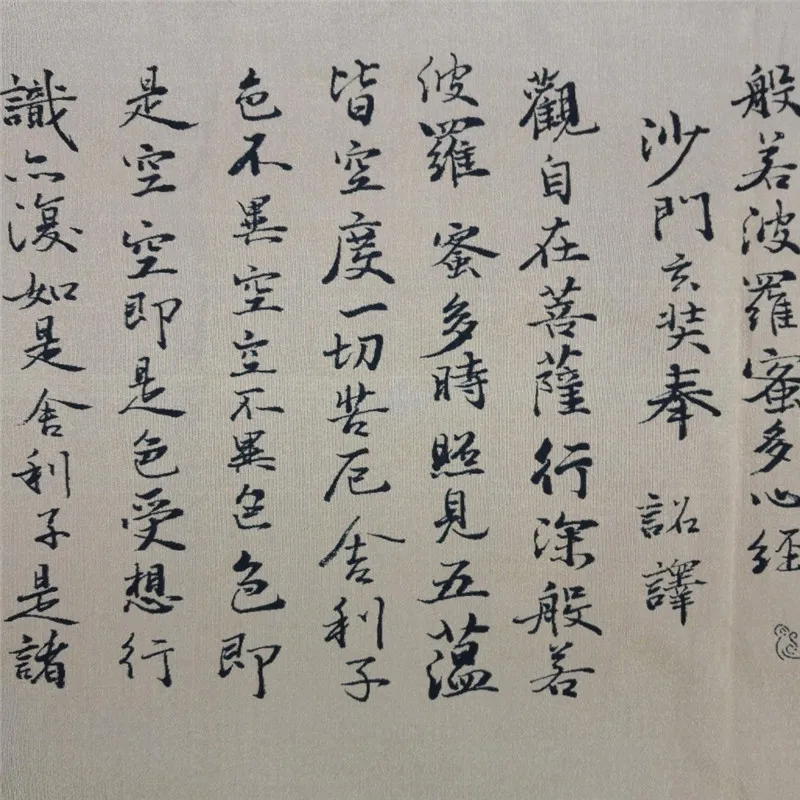 般若波羅蜜多心経
沙門玄奘奉 詔譯
觀自在菩薩行深般若
彼羅蜜多時照見五蕰
皆空度一切苦厄舎利子
色不異空空不異色色即
是空空即是色受想行
識亦復如是舎利子是諸